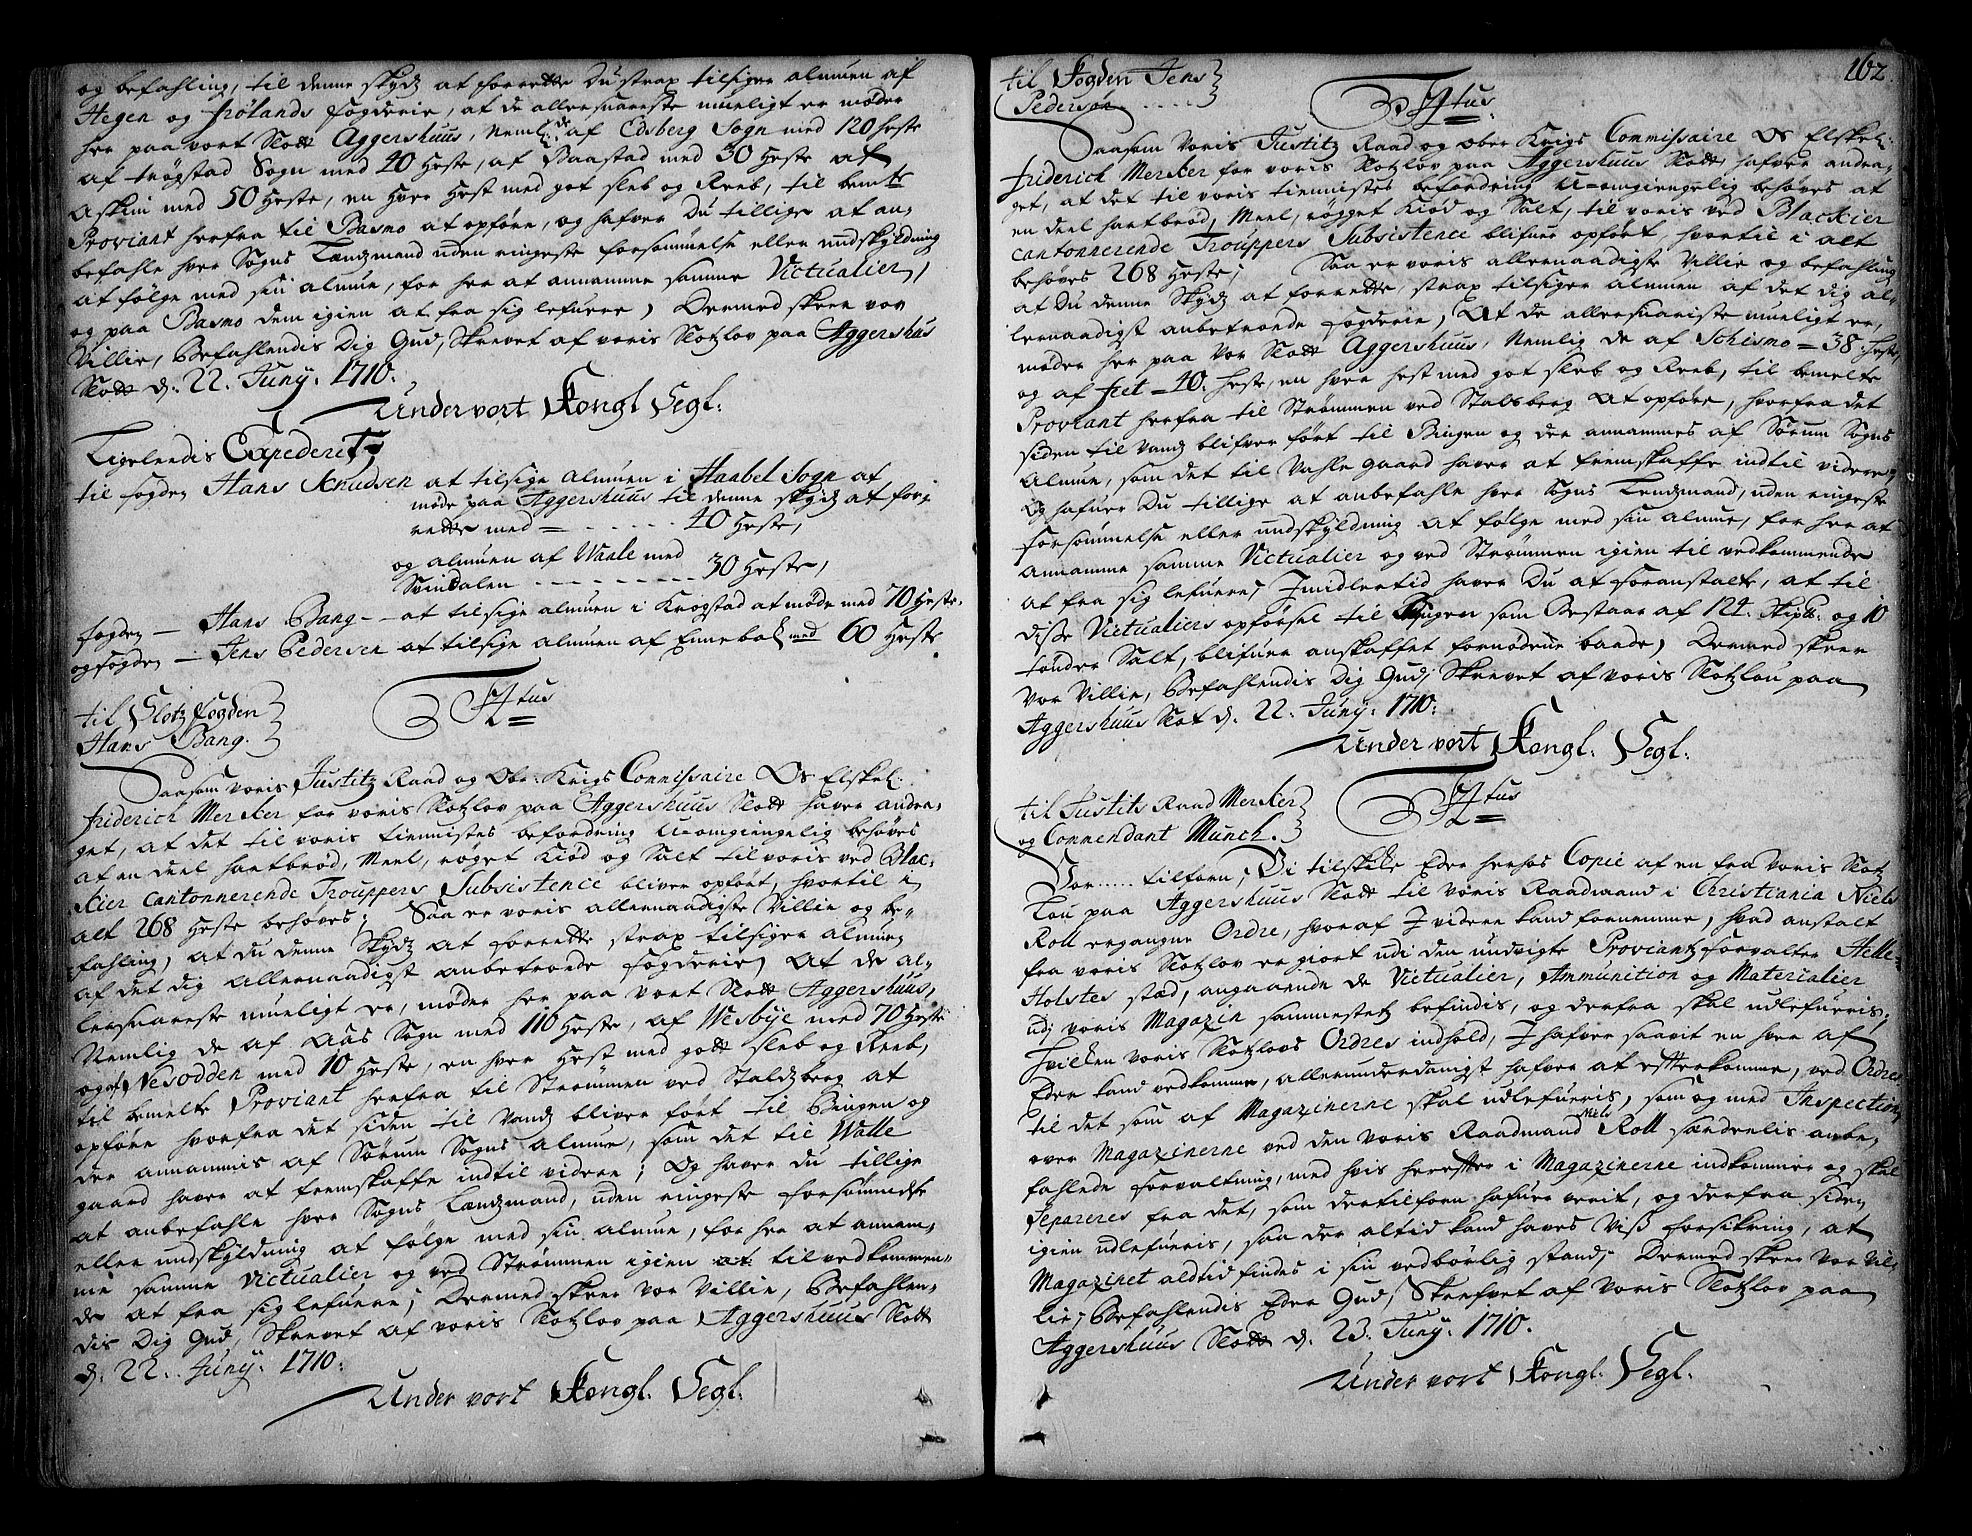 og befahling, til denne skydz at forrette Du strax tilsiger almuen af
Hegen og Frølands fogderie, at de allersnareste mueligt er møder
her paa vort Slott Aggershuus, Neml: de af Edsberg Sogn med 120 heste
af trøgstad Sogn med 40 Heste, af Baastad med 30 Heste af
Askim med 50 Heste, en hver Hest med got sleb og Reeb, til bemte
Proviant herfra til Basmo at opføre, og hafver Du tillige at an-
befahle hver Sogns Lendzmand uden ringeste forsømmelse eller undskyldning
at følge med sin almue, for her at annamme samme Victualier,
og paa Basmo dem igien at fra sig lefuere, Dermed skeer vor
Villie, Befahlendis Dig Gud, Skrevet af voris Slotzlov paa Aggershus
Slott d. 22. Junij. 1710.
Under vort Kongl Segl.
Ligelendis Expederit,
til fogden Hans Knudsen at tilsige almuen i Haabel Sogn at
møde paa Aggershuus til denne skydz at for-
rette med = - - - - - 40 Heste,
og almuen af Waale med
Svindalen - - - - - - - - 30 Heste,
fogden — Hans Bang - at tilsige almuen i Krogstad at møde med 70 Heste.
og fogden — Jens Pedersen at tilsige almuen af Ennebak med 60 Heste.
F4tus
til Slotz fogden
Hans Bang.
Saasom voris Justitz Raad og Obr: Krigs Commissaire Os Elskel:
friderich Merker for voris Slotzlov paa Aggershuus Slott haver andra-
get, at det til voris tiennistes befordring U-omgiengelig behøves
at en deel hartbrød, Meel, røget Kiød og Salt til voris ved Blac-
kier cantonnerende Trouppers Subsistence bliver opført, hvortil i
alt 268 Heste behøves; Saa er voris allernaadigste Villie og be-
fahling, at du denne Skydz at forrette strax tilsiger almuen
af det dig Allernaadigst anbetroede fogderie, At de al-
lersnareste mueligt er, møder her paa vort Slott Aggershuus,
Nemlig de af Aas Sogn med 110 Heste, af Wesbye med 70 Heste
og af Nesodden med 10 Heste, en hver Hest med godt sleb og Reeb,
til bemelte Proviant herfra til Strømmen ved Staldzberg at
opføre hvorfra det siden til Vandz bliver ført til Bingen og
der annammis af Sørum Sogns Almue, som det til Walle
gaard haver at fremskaffe indtil videre; Og haver du tillige
at anbefahle hver Sogns Lendzmand, uden ringeste forsømmelse
eller undskyldning at følge med sin almue, for her at annam-
me samme Victualier og ved Strømmen igien at til vedkommen-
de at fra sig lefuere; Dermed skeer vor Villie, Befahlen-
dis Dig Gud, Skrevet af voris Slotzlov paa Aggershuus Slott
d. 22. Junij. 1710.
Under vort Kongl. Segl.
162.
til Fogden Jens
Pedersøn - - - -
F4tus
Saasom Voris Justitz Raad og Ober Krigs Commissaire Os Elskel:
friderich Merker for voris Slotzlov paa Aggershuus Slott, hafver andra-
get, at det til voris tiennistes befordring U-omgiengelig behøves at
en deel hartbrød, Meel, røgget Kiød og Salt, til voris ved Blackier
cantonnerende Trouppers Subsistence blifuer opført, hvortil i alt
behøves 268 Heste; Saa er voris allernaadigste Villie og befahling
at Du denne Skydz at forrette, strax tilsiger almuen af det dig al-
lernaadigst anbetroede fogderie, At de allersnariste mueligt er,
møder her paa Vor Slott Aggershuus, Nemlig de af Schismo = 38. heste,
og af Feet = 40. heste, en hver hest med got sleb og Reeb, til bemelte
Proviant herfra til Strømmen ved Stalsberg at opføre, hvorfra det
siden til Vandz blifver ført til Bingen og der annammes af Sørum Sogns
Almue, som det til Vahle gaard haver at fremskaffe indtil videre;
Og hafuer Du tillige at anbefahle hver Sogns Lendzmand, uden ringeste
forsømmelse eller undskyldning at følge med sin almue, for her at
annamme samme Victualier og ved Strømmen igien til vedkommende
at fra sig lefuere; Imidlertid haver Du at foranstalte, at til
disse Victualiers opførsel til Bingen som Bestaar af 124. Skipll: og 10
tønder Salt, blifuer anskaffet fornødene baade, Dermed skeer
vor Villie, Befahlendis Dig Gud, Skrevet af voris Slotzlou paa
Aggershuus Slot d. 22. Junij. 1710.
Under vort Kongl. Segl.
til Justits Raad Merker
og Commendant Munch.
F4tus
Vor..... tilforn, Vi tilskikke Eder herhos Copie af en fra Voris Slotz
Lou paa Aggershuus Slott til voris Raadmand i Christiania Niels
Roll ergangne Ordre, hvoraf I videre kand fornemme, hvad anstalt
fra voris Slotzlov er giort udi den undvigte Proviantzforvalter Helle-
Holstes stad, angaaende de Victualier, Ammunition og Materialier
udj voris Magazin sammestetz befindis, og derfra skal udlefueris;
Hvilken voris Slotzlovs Ordres indhold, I hafver saavit en hver af
Eder kand vedkomme, allerunderdanigst hafver at efterkomme, ved Ordre
til det som af Magazinerne skal udlefueris, som og med Inspection
over Magazinerne ved den Voris Raadmand Niels Roll særdenlis anbe-
fahlede forvaltning, med hvis herefter i Magazinerne indkommer og skal
Separeres fra det, som dertilforn hafuer verit, og derfra siden
igien udlefueris, saa der altid kand haves Viss forsikring, at
Magazinet altid findes i sin vedbørlig stand; Dermed skeer Vor Vil-
lie, Befahlendis Eder Gud, Skrefvet af Voris Slotzlov paa
Aggershuus Slott d. 23. Junij. 1710.
Under vort Kongl. Segl.